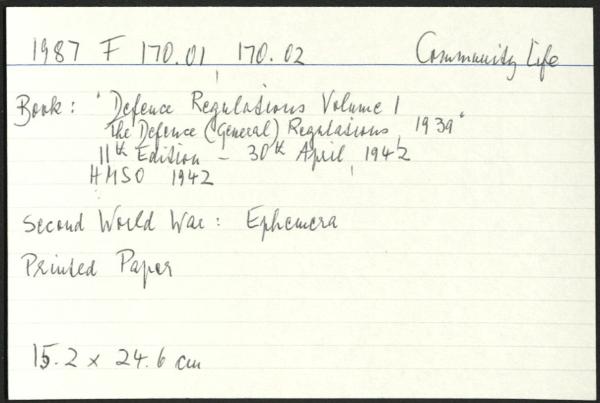 1987 F 170.01 170.02 Community Life
Book: "Defence Regulations Volume 1
The Defence (General) Regulations, 1939"
11th Edition - 30th April, 1942
HMSO 1942
Second World War: Ephemera
Printed Paper
15.2 x 24.6 cm